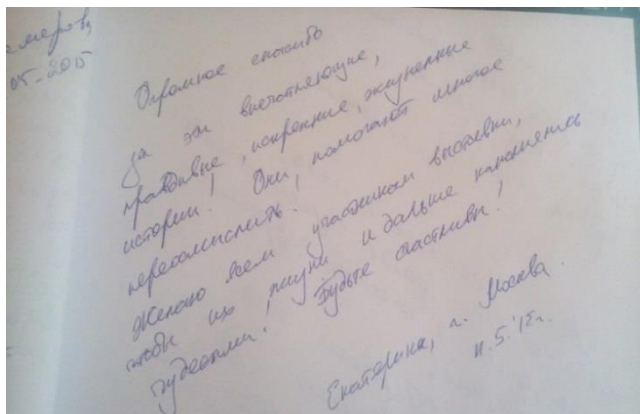 05-2015
Огромное спасибо
за эти впечатляющие,
правдивые, искренние, жизненные
истории! Они помогают многое
переосмыслить!
Желаю всем участникам выставки,
чтобы их жизни и дальше наполнялись
чудесами! Будьте счастливы!
Екатерина, г. Москва.
11.5.15г.